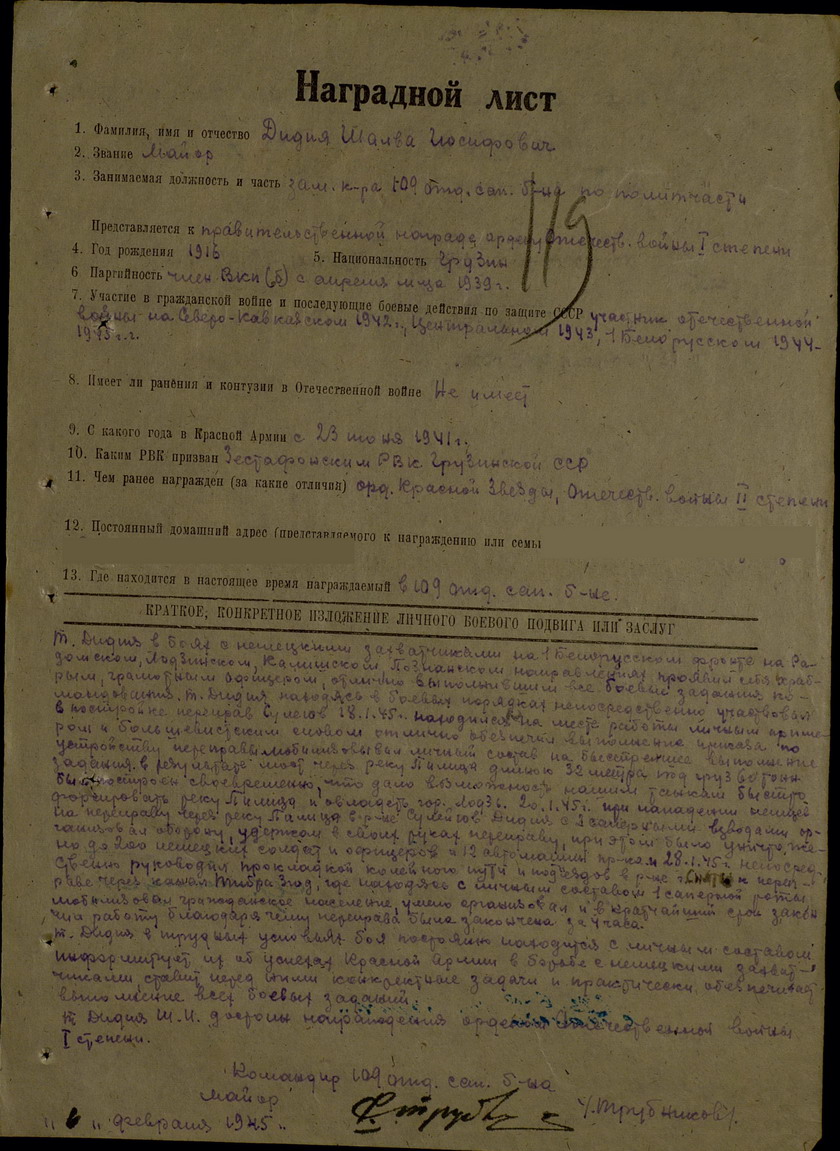 Наградной лист
1. Фамилия, имя и отчество Дидия Шалва Иосифович
2. Звание Майор
3. Занимаемая должность и часть зам. к-ра 109 отд. сап. б-на по политчасти
119
Представляется к правительственной награде ордену Отечеств. войны I степени
4. Год рождения 1916 5. Национальность Грузин
6. Партийность член ВКП(б) с апреля м-ца 1939 г.
7. Участие в гражданской войне и последующие боевые действия по защите СССР участник отечественной
войны на Северо-Кавказском 1942 г., Центральном 1943, 1 Белорусском 1944-
1945 г.г.
8. Имеет ли ранения и контузии в Отечественной войне Не имеет
9. С какого года в Красной Армии с 23 июня 1941 г.
10. Каким РВК призван Зестафонским РВК Грузинской ССР
11. Чем ранее награжден (за какие отличия) орд. Красной Звезды, Отечеств. войны II степени
12. Постоянный домашний адрес (представляемого к награждению или семьи
13. Где находится в настоящее время награждаемый в 109 отд. сап. б-не.
КРАТКОЕ, КОНКРЕТНОЕ ИЗЛОЖЕНИЕ ЛИЧНОГО БОЕВОГО ПОДВИГА ИЛИ ЗАСЛУГ
т. Дидия в боях с немецкими захватчиками на 1 Белорусском фронте на Ра-
домском, Лодзинском, Калишском Познанском направлениях проявил себя храб-
рым, грамотным офицером, отлично выполнившим все боевые задания ко-
мандования. т. Дидия находясь в боевых порядках непосредственно участвовал
в постройке переправ Сулеюв 18.1.45 г. находился на месте работы личным приме-
ром и большевистским словом отлично обеспечил выполнение приказа по
устройству переправы мобилизовывал личный состав на быстрейшее выполнение
задания. в результате мост через реку Пилица длиною 32 метра под груз 60 тонн
был построен своевременно, что дало возможность нашим танкам быстро
форсировать реку Пилица и овладеть гор. Лодзь. 20.1.45 г. при нападении немцев
на переправу через реку Пилица в р-не Сулеюв Дидия с 2 саперными взводами ор-
ганизовал оборону, удержал в своих руках переправу, при этом было уничтоже-
но до 200 немецких солдат и офицеров и 12 автомашин пр-ком 28.1.45 г. непосред-
ственно руководил прокладкой колейного пути и подъездов в р-не к перепра-
ве через канал, где находясь с личным составом 1 саперной роты
мобилизовал гражданское население, умело организовал и в кратчайший срок закон-
чил работу благодаря чему переправа была закончена за 4 часа.
т. Дидия в трудных условиях боя постоянно находится с личным составом
информирует их об успехах Красной Армии в борьбе с немецкими захват-
чиками, ставит перед ними конкретные задачи и практически обеспечивает
выполнение всех боевых заданий.
т. Дидия Ш.И. достоин награждения орденом Отечественной войны
I степени.
Командир 109 отд. сап. б-на
Майор /Трубников/.
"6" февраля 1945 г.